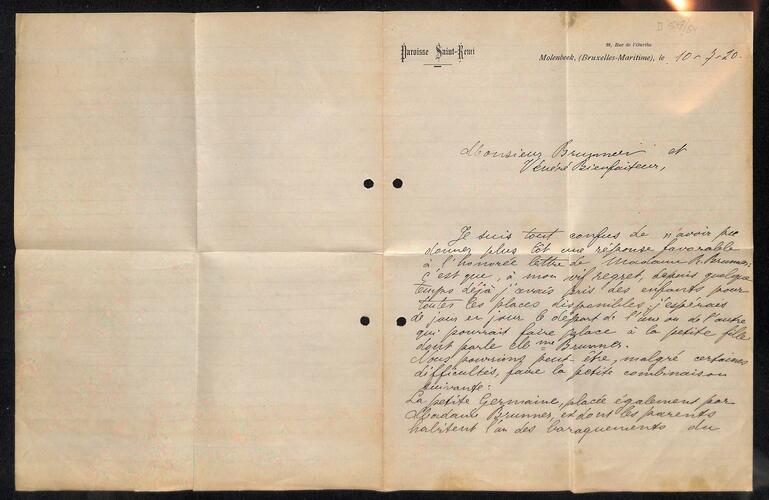 Paroisse Saint-Remi
Molenbeek, (Bruxelles-Maritime), le 10-7-20.
Monsieur Brunner et
Vénéré Bienfaiteur,
Je suis tout confus de n'avoir pu
donner plus tôt une réponse favorable
à l'honorée lettre de Madame R. Brunner;
c'est que, à mon vif regret, depuis quelque
temps déjà j'avais pris des enfants pour
toutes les places disponibles, j'espérais
de jour en jour le départ de l'une ou de l'autre
qui pourrait faire place à la petite fille
dont parle Mme Brunner.
Nous pourrions peut-être, malgré certaines
difficultés, faire la petite combinaison
suivante:
La petite Germaine, placée également par
Madame Brunner, et dont les parents
habitent l'un des baraquements du